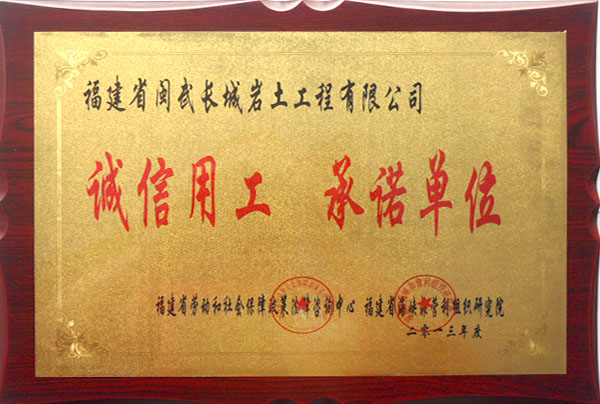 福建省闽武长城岩土工程有限公司
诚信用工 承诺单位
福建省劳动和社会保障政策法律咨询中心 福建省海峡非营利组织研究院
二零一三年度